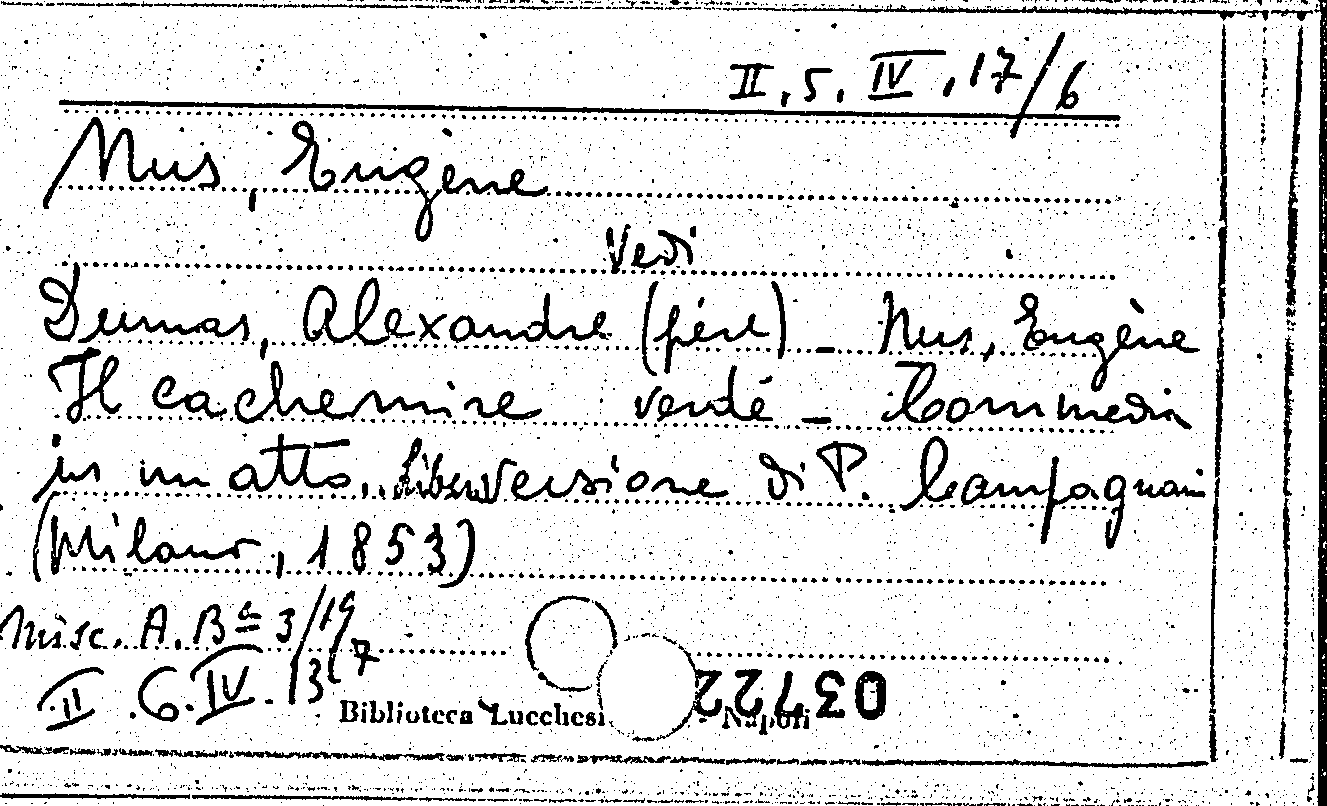 II.5.IV.17/6
Nus, Eugène
Vedi
Dumas, Alexandre (père) - Nus, Eugène
Il cachemire verde - Commedia
in un atto. Libera versione di P. Campagnani
(Milano, 1853)
Misc. A. Bª 3/19
II.6.IV.13/7
Biblioteca Lucchesi - Napoli
03722